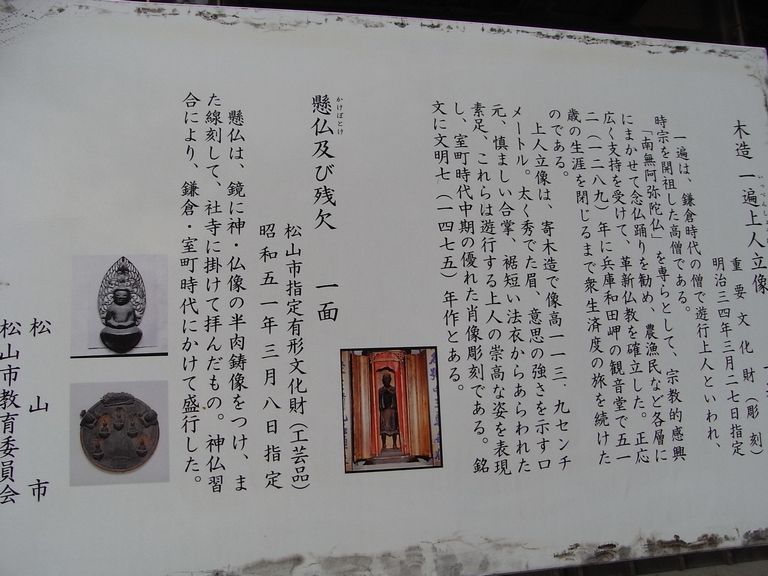 木造 一遍上人立像
重要文化財（彫刻）
明治三四年三月二七日指定
一遍は、鎌倉時代の僧で遊行上人といわれ、
時宗を開祖した高僧である。
「南無阿弥陀仏」を専らとして、宗教的感興
にまかせて念仏踊りを勧め、農漁民など各層に
広く支持を受けて、革新仏教を確立した。正応
二（一二八九）年に兵庫和田岬の観音堂で五一
歳の生涯を閉じるまで衆生済度の旅を続けた
のである。
上人立像は、寄木造で像高一一三．九センチ
メートル。太く秀でた眉、意思の強さを示す口
元、慎ましい合掌、裾短い法衣からあらわれた
素足、これらは遊行する上人の崇高な姿を表現
し、室町時代中期の優れた肖像彫刻である。銘
文に文明七（一四七五）年作とある。
かけぼとけ
懸仏及び残欠 一面
松山市指定有形文化財（工芸品）
昭和五一年三月八日指定
懸仏は、鏡に神・仏像の半肉鋳像をつけ、ま
た線刻して、社寺に掛けて拝んだもの。神仏習
合により、鎌倉・室町時代にかけて盛行した。
松山市
松山市教育委員会